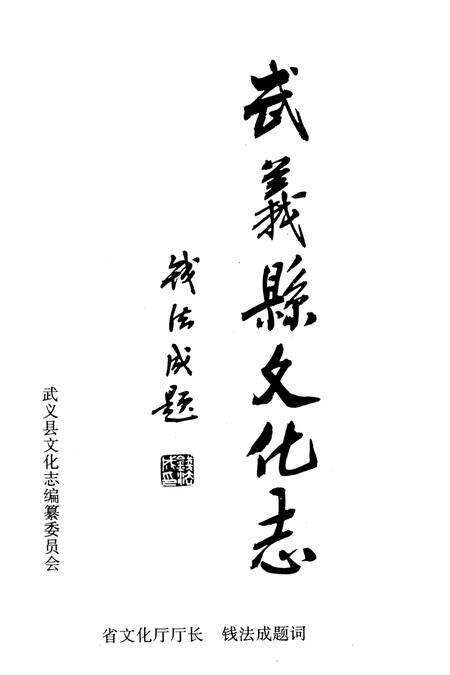 武義縣文化志
钱法成题
武义县文化志编纂委员会
省文化厅厅长　钱法成题词